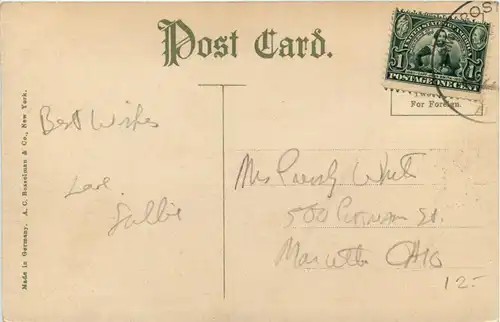 Post Card.
POS
UNITED STATES OF AMERICA
1 1
POSTAGE ONE CENT
For Foreign.
Best Wishes
Love.
Sallie
Mrs White
500 Putnam St.
Marietta Ohio
12-
Made in Germany. A. C. Bosselman & Co., New York.